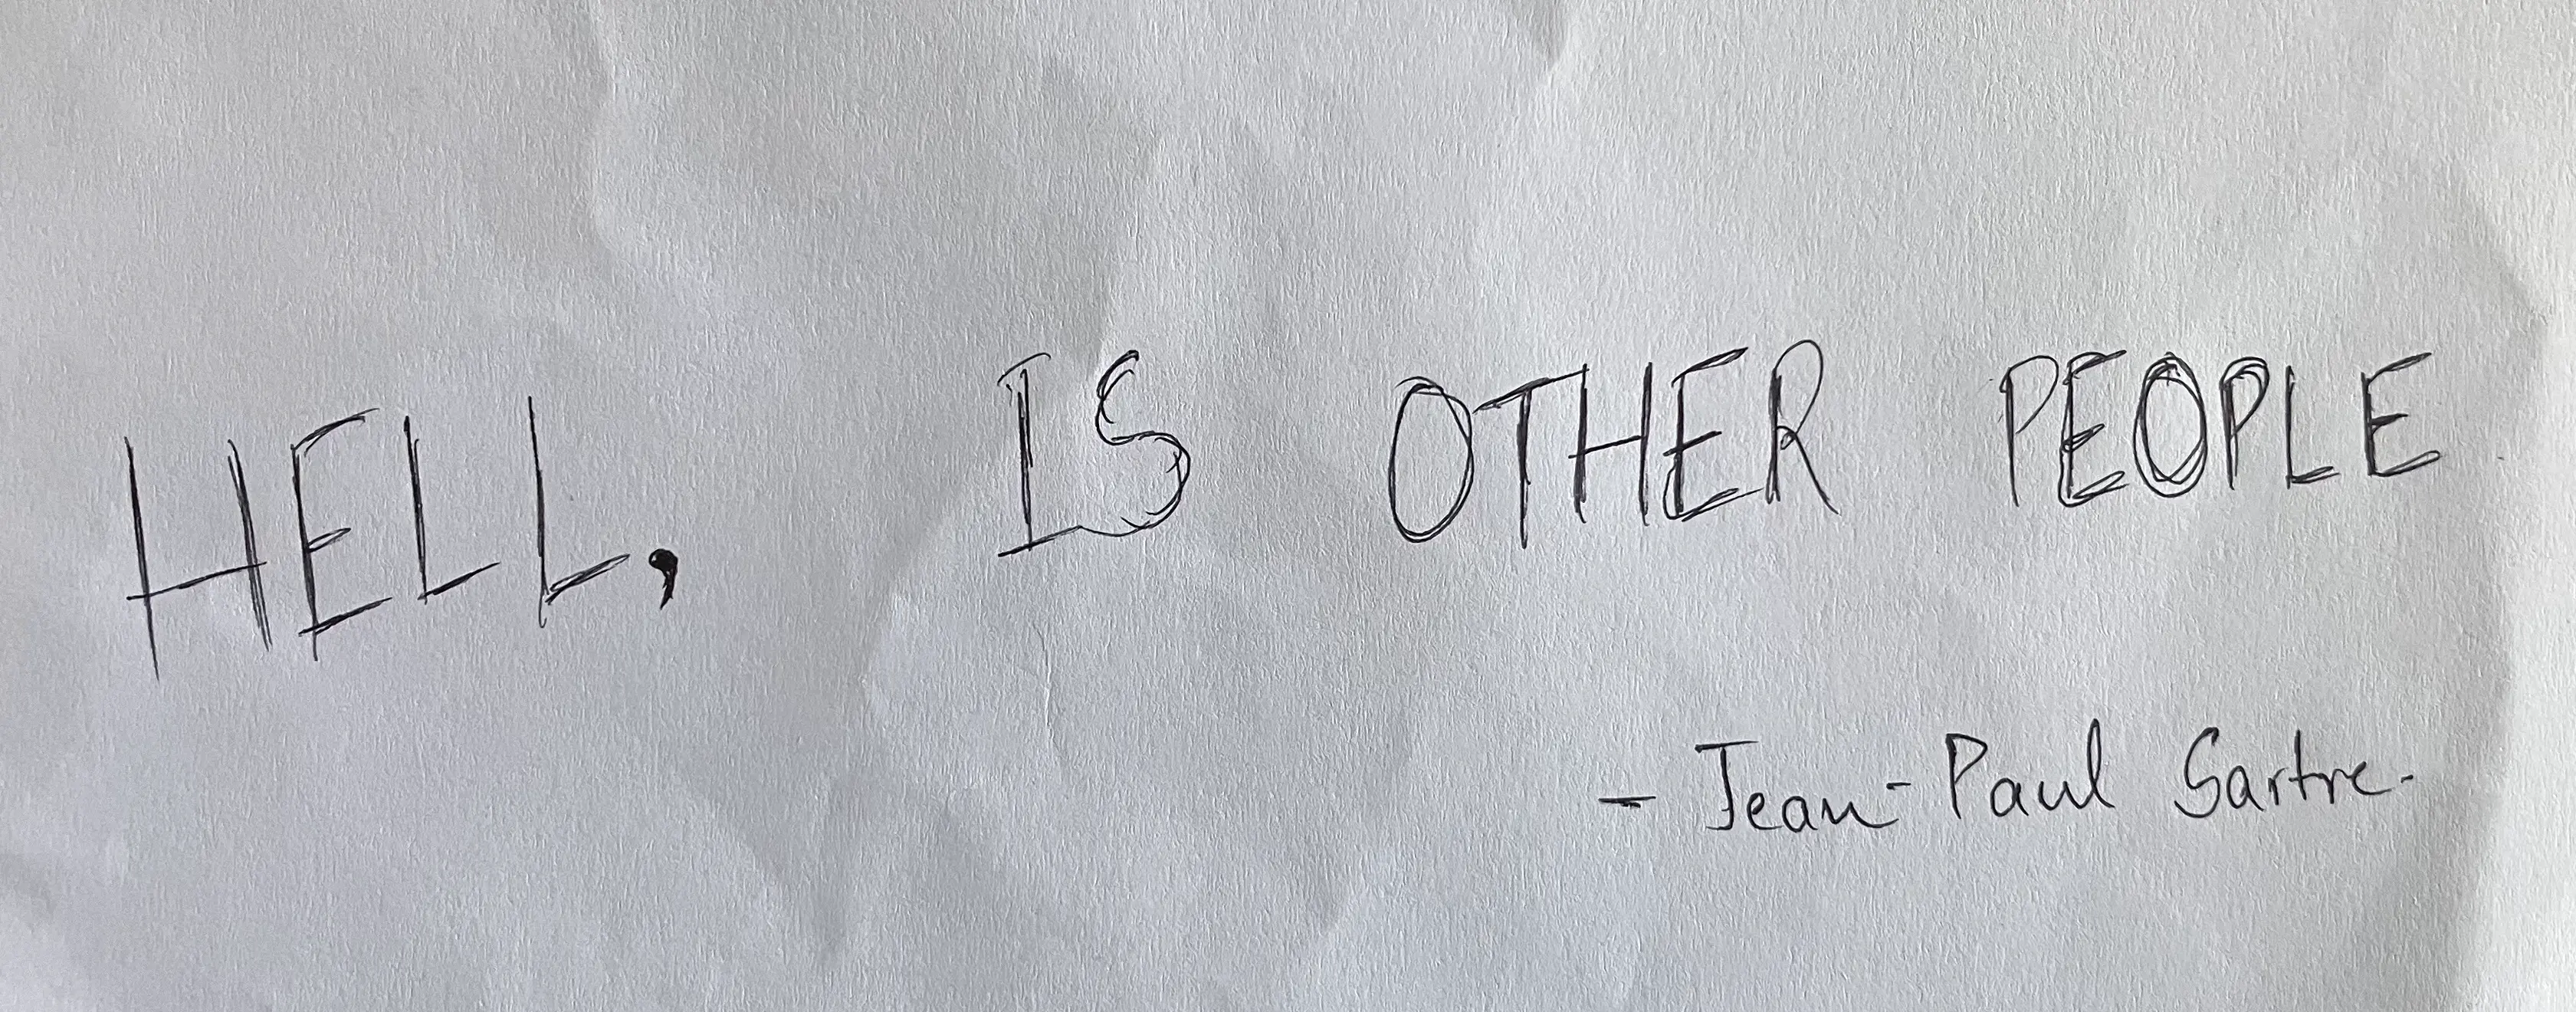 HELL, IS OTHER PEOPLE
- Jean-Paul Sartre.